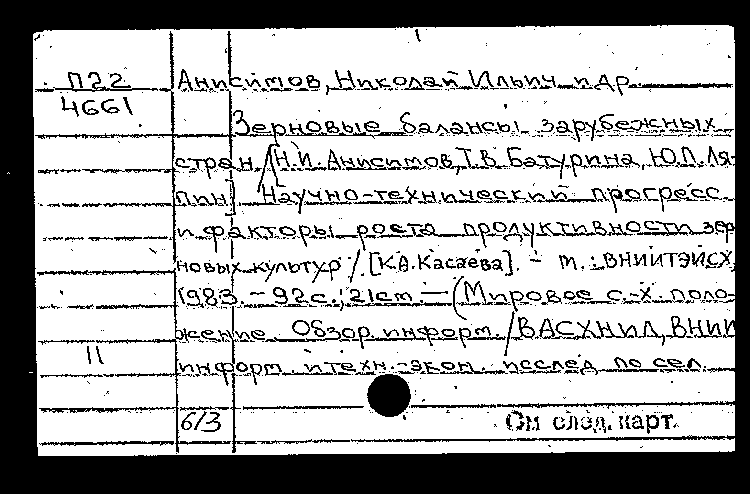 П22 Анисимов, Николай Ильич и др.
4661
Зерновые балансы зарубежных
стран / [Н.И. Анисимов, Т.В. Батурина, Ю.П. Ля-
пин]. Научно-технический прогресс
и факторы роста продуктивности зер
новых культур / [К.А. Касаева]. - М.: ВНИИТЭИСХ,
1983. - 92 с.; 21 см. — (Мировое с.-х. поло-
жение. Обзор. информ. / ВАСХНИЛ, ВНИИ
11 информ. и техн.-экон. исслед. по сел.
б/з См след. карт.